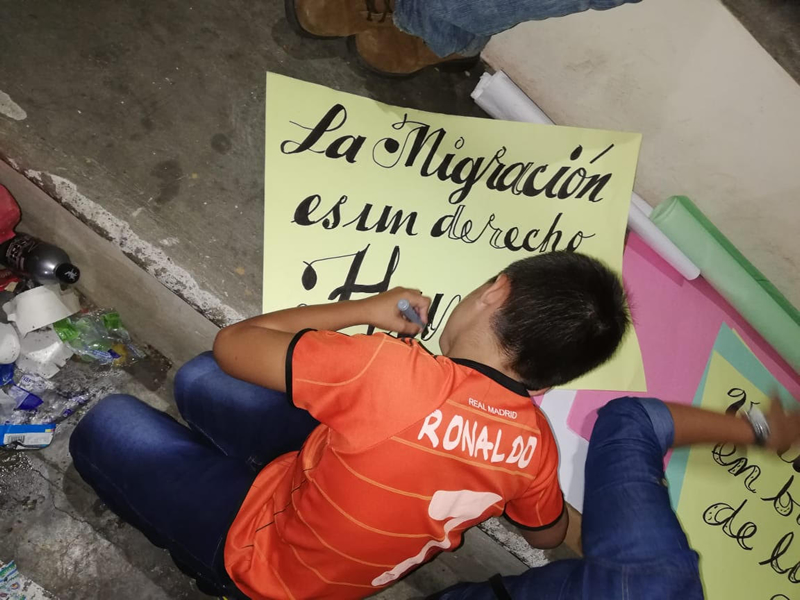 La Migración
es un derecho
REAL MADRID
RONALDO
7
en b
de lo